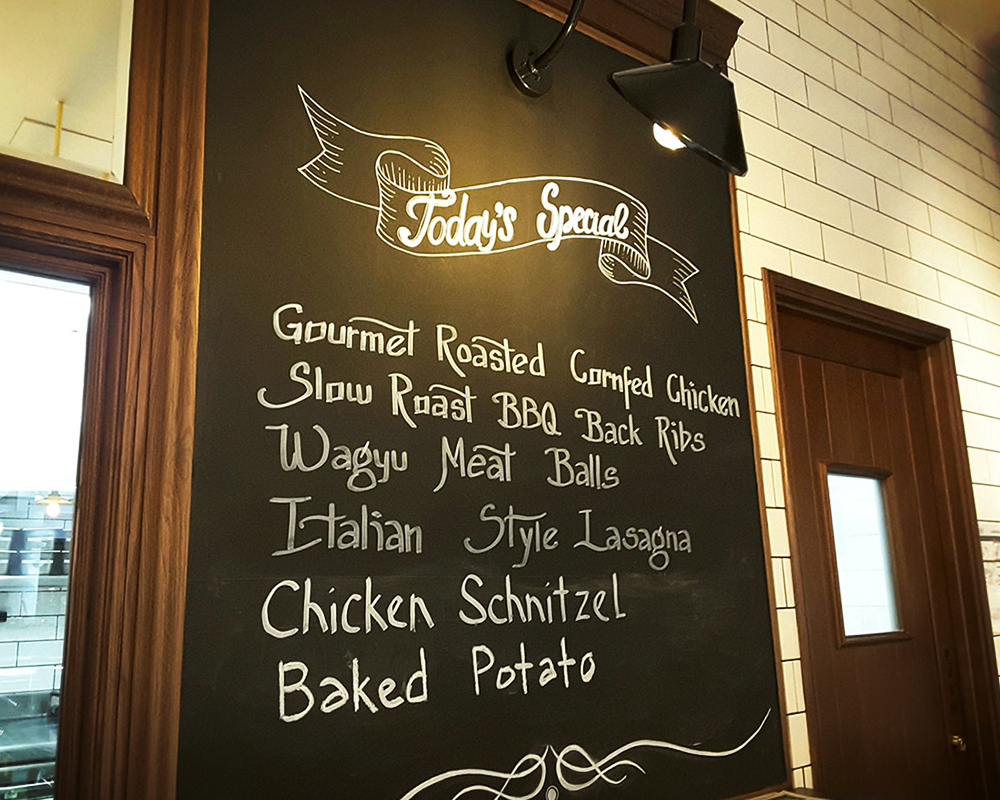 Today's Special
Gourmet Roasted Cornfed Chicken
Slow Roast BBQ Back Ribs
Wagyu Meat Balls
Italian Style Lasagna
Chicken Schnitzel
Baked Potato